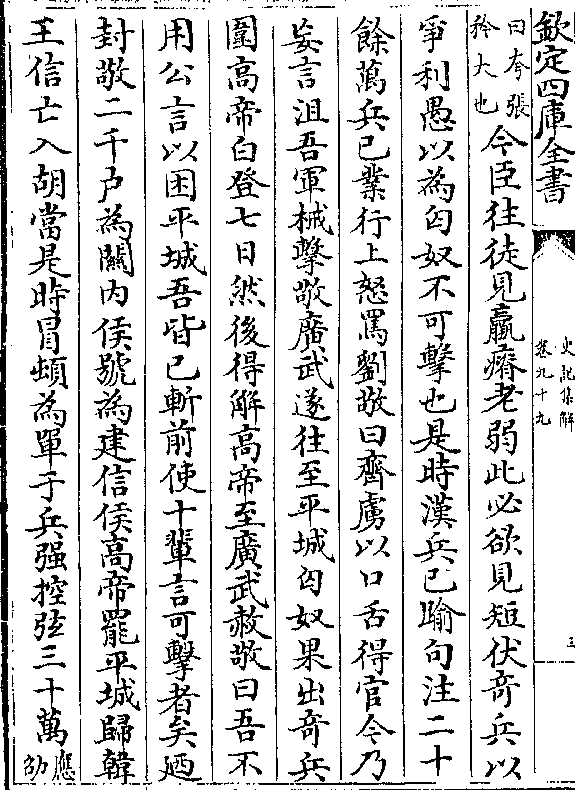 欽定四庫全書
史記集解
卷九十九
三
曰夸張
矜大也
今臣往徒見羸瘠老弱此必欲見短伏奇兵以
爭利愚以為匈奴不可擊也是時漢兵已踰句注二十
餘萬兵已業行上怒罵劉敬曰齊虜以口舌得官今乃
妄言沮吾軍械擊敬廣武遂往至平城匈奴果出奇兵
圍高帝白登七日然後得解高帝至廣武赦敬曰吾不
用公言以困平城吾皆已斬前使十輩言可擊者矣廼
封敬二千户為關内侯號為建信侯高帝罷平城歸韓
王信亡入胡當是時冒頓為單于兵强控弦三十萬
應
劭